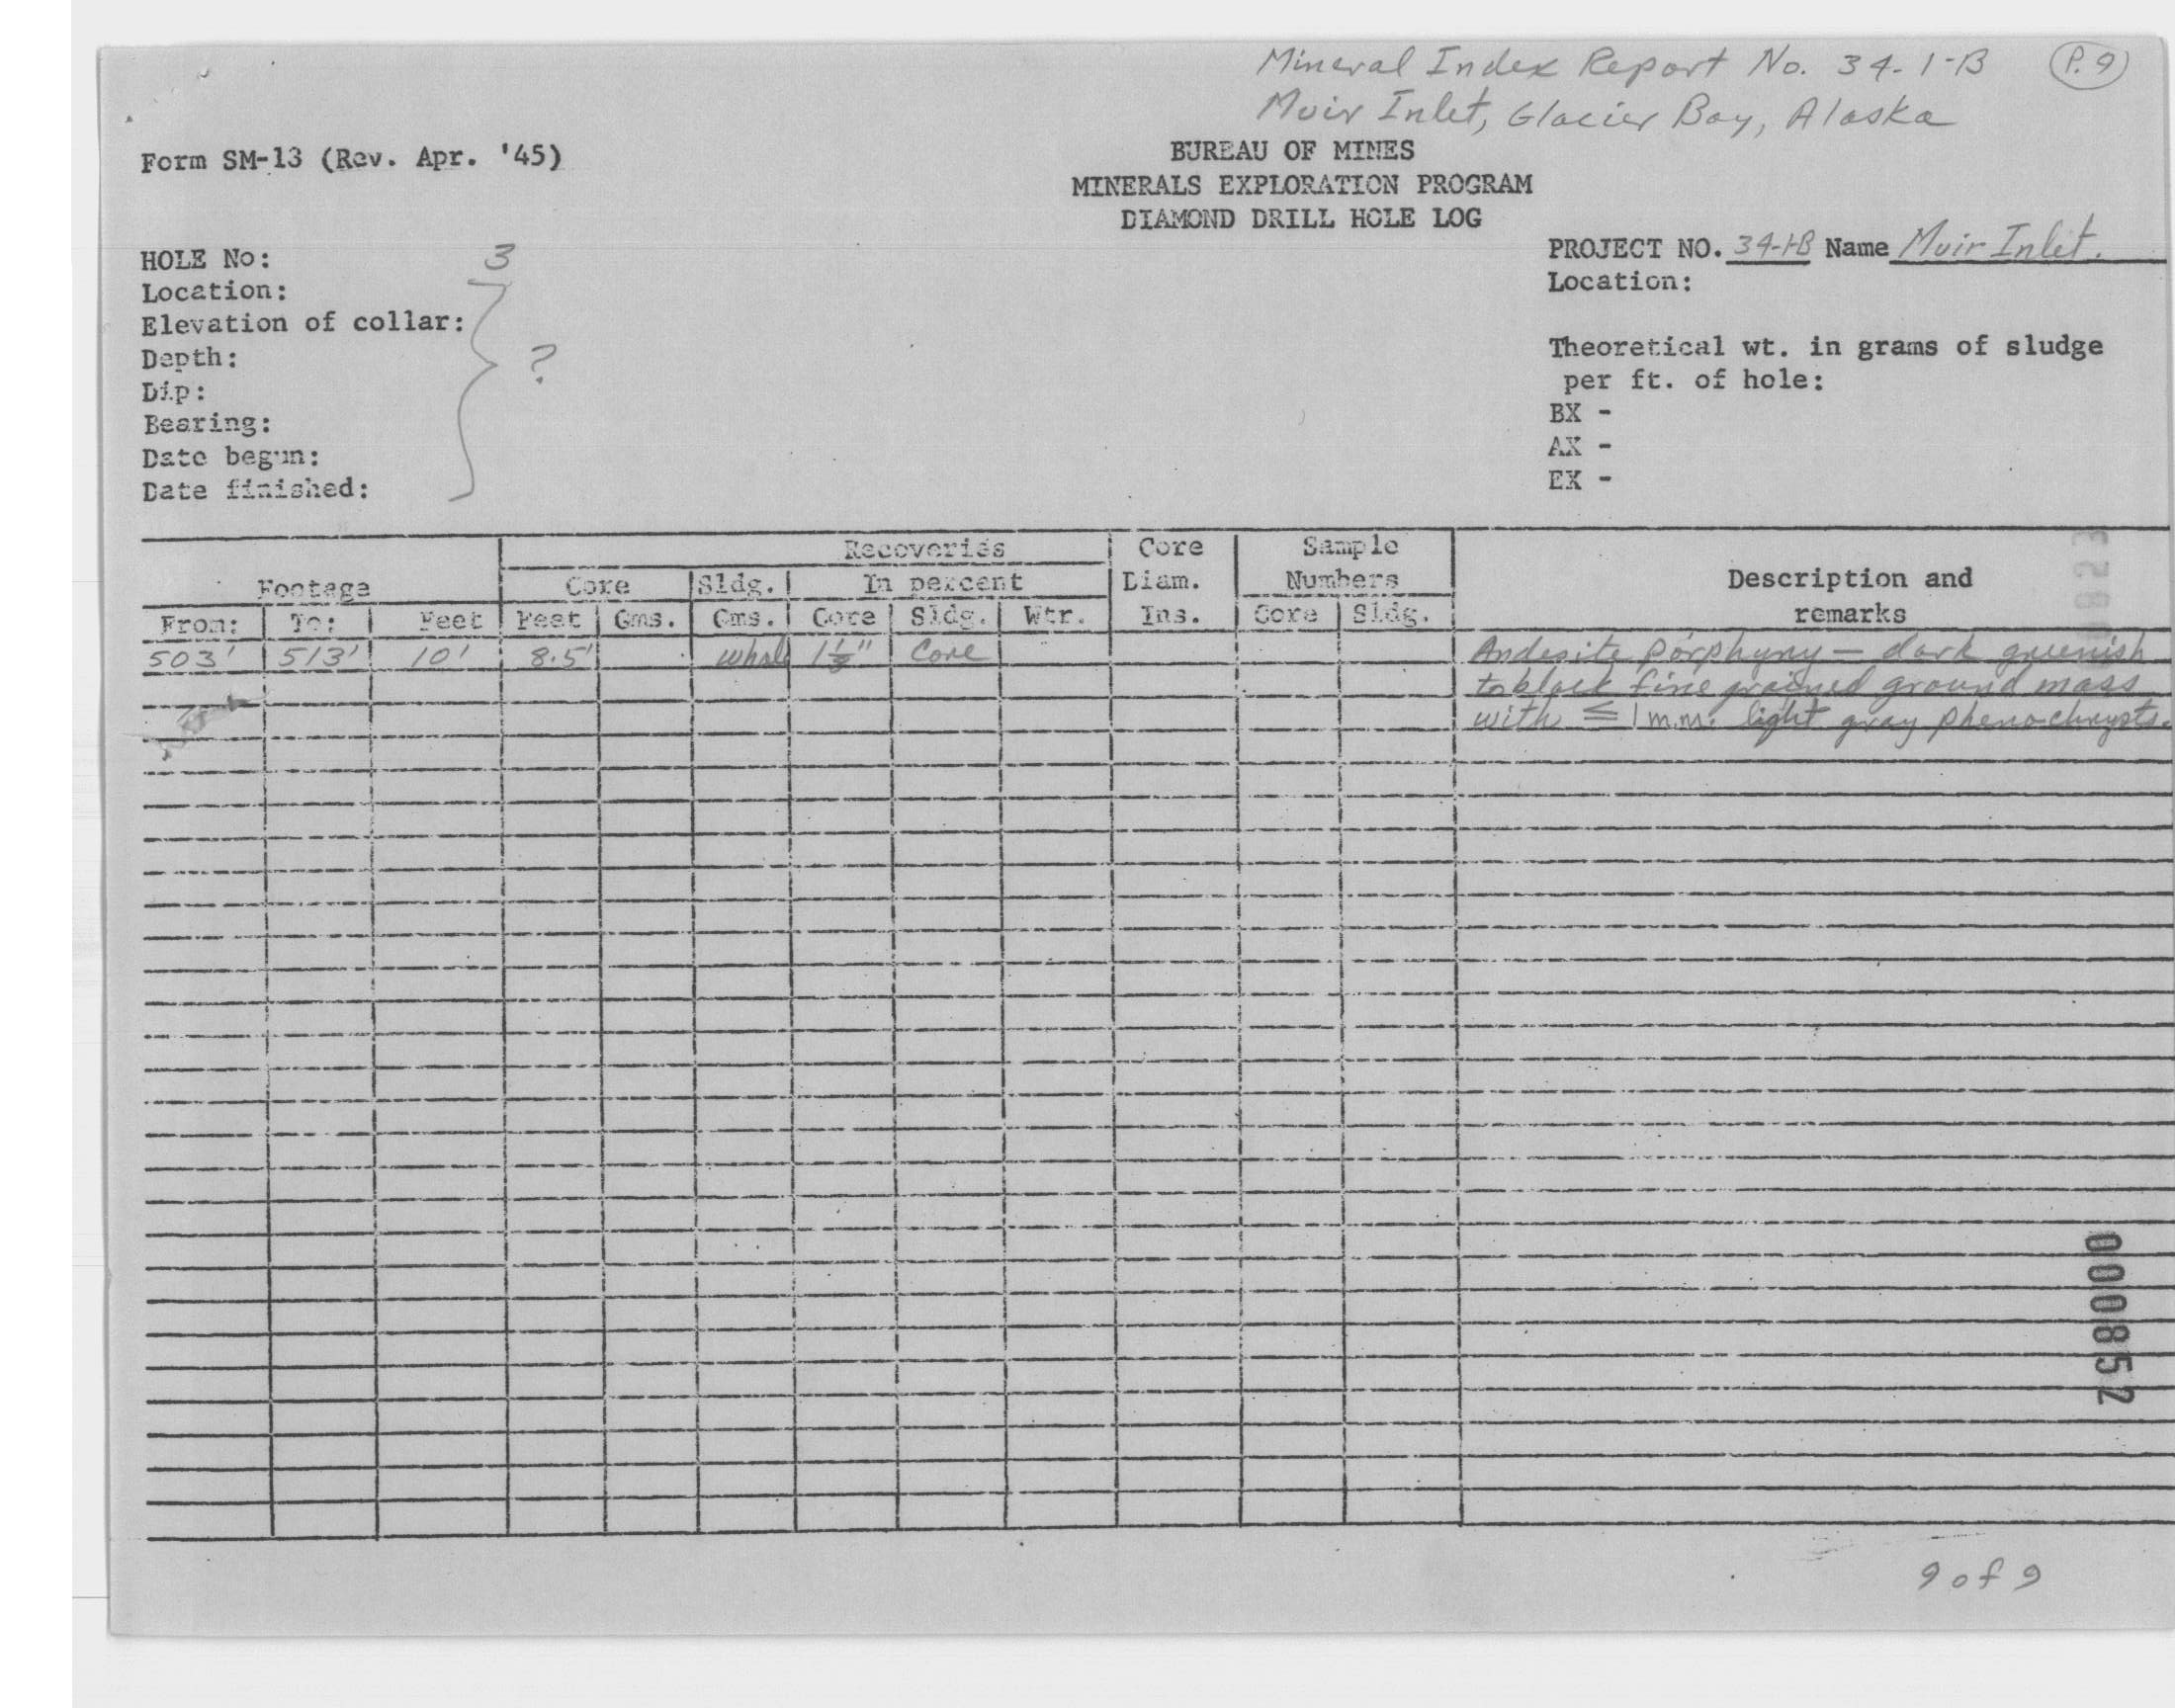 Mineral Index Report No. 34-1-B P.9
Muir Inlet, Glacier Bay, Alaska
Form SM-13 (Rev. Apr. '45)
BUREAU OF MINES
MINERALS EXPLORATION PROGRAM
DIAMOND DRILL HOLE LOG
HOLE No: 3
Location:
Elevation of collar:
Depth: ?
Dip:
Bearing:
Date begun:
Date finished:
PROJECT NO. 34-1-B Name Muir Inlet.
Location:
Theoretical wt. in grams of sludge
per ft. of hole:
BX -
AX -
EX -
Recoveries Core Sample
Footage Core Sldg. In percent Diam. Numbers Description and
From: To: Feet Feet Gms. Gms. Core Sldg. Wtr. Ins. Core Sldg. remarks
503' 513' 10' 8.5' whole Core Andesite Porphyry — dark greenish
to black fine grained ground mass
with ≤ 1 m.m. light gray phenochrysts.
0000852
9 of 9